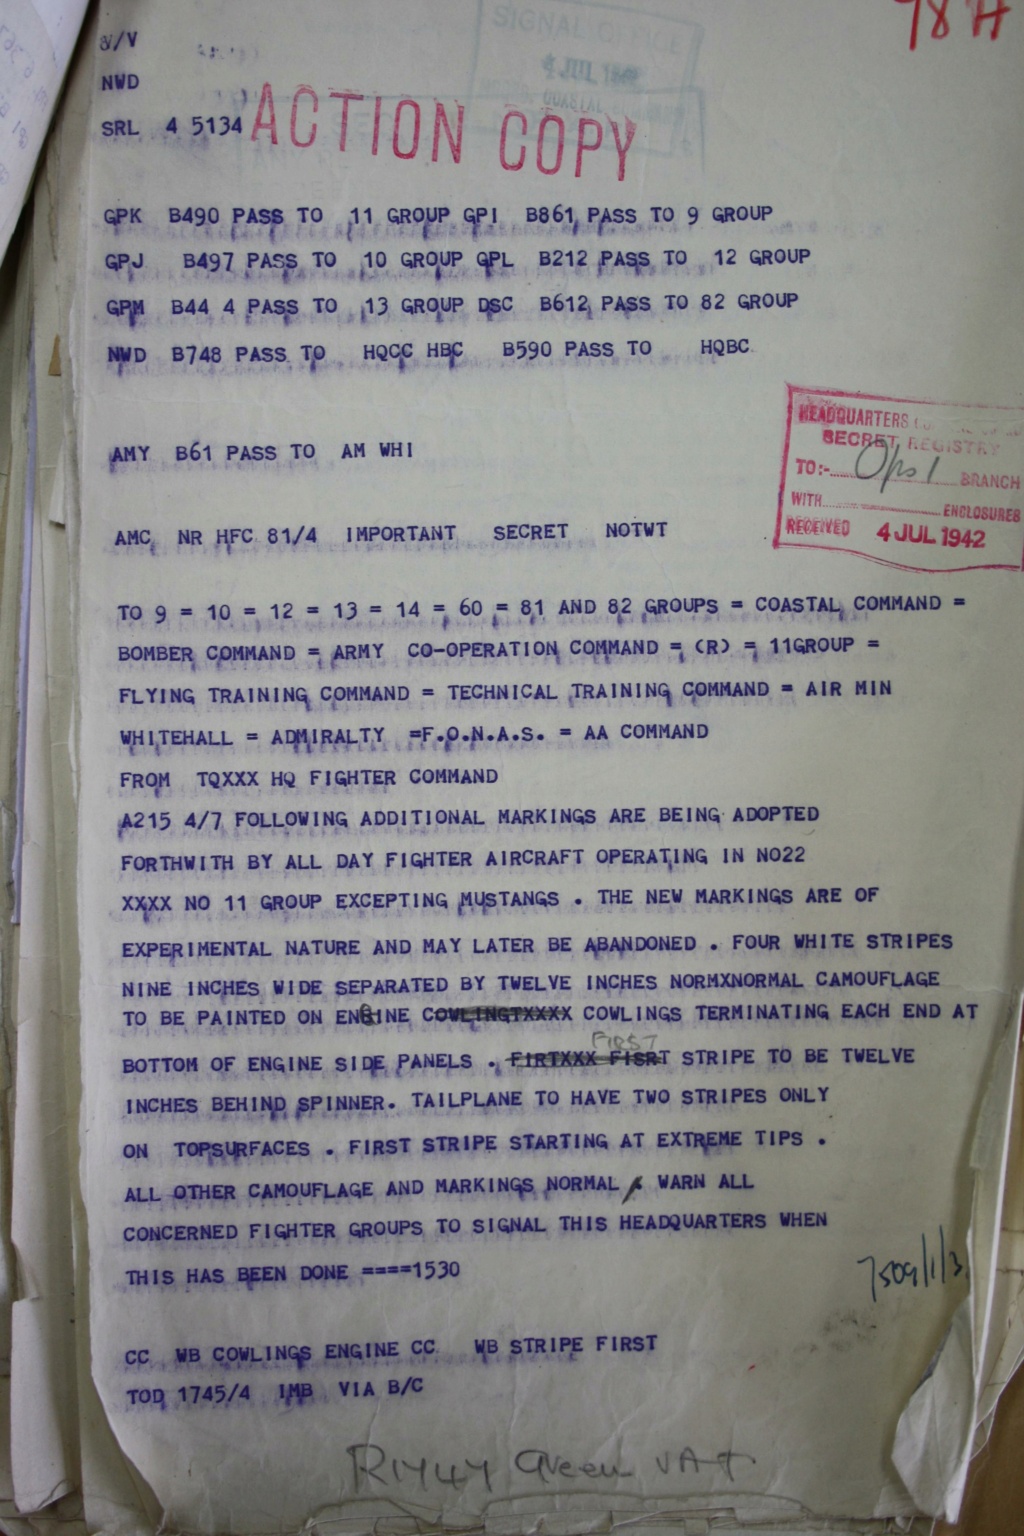 78H
SIGNAL OFFICE
4 JUL
COASTAL
NWD
SRL 4 5134
ACTION COPY
GPK B490 PASS TO 11 GROUP GPI B861 PASS TO 9 GROUP
GPJ B497 PASS TO 10 GROUP GPL B212 PASS TO 12 GROUP
GPM B44 4 PASS TO 13 GROUP DSC B612 PASS TO 82 GROUP
NWD B748 PASS TO HQCC HBC B590 PASS TO HQBC
HEADQUARTERS
SECRET REGISTRY
TO:- Ops 1 BRANCH
WITH ENCLOSURES
RECEIVED 4 JUL 1942
AMY B61 PASS TO AM WHI
AMC NR HFC 81/4 IMPORTANT SECRET NOTWT
TO 9 = 10 = 12 = 13 = 14 = 60 = 81 AND 82 GROUPS = COASTAL COMMAND =
BOMBER COMMAND = ARMY CO-OPERATION COMMAND = (R) = 11GROUP =
FLYING TRAINING COMMAND = TECHNICAL TRAINING COMMAND = AIR MIN
WHITEHALL = ADMIRALTY =F.O.N.A.S. = AA COMMAND
FROM TQXXX HQ FIGHTER COMMAND
A215 4/7 FOLLOWING ADDITIONAL MARKINGS ARE BEING ADOPTED
FORTHWITH BY ALL DAY FIGHTER AIRCRAFT OPERATING IN NO22
XXXX NO 11 GROUP EXCEPTING MUSTANGS . THE NEW MARKINGS ARE OF
EXPERIMENTAL NATURE AND MAY LATER BE ABANDONED . FOUR WHITE STRIPES
NINE INCHES WIDE SEPARATED BY TWELVE INCHES NORMXNORMAL CAMOUFLAGE
TO BE PAINTED ON ENGINE COWLINGTXXXX COWLINGS TERMINATING EACH END AT
FIRST
BOTTOM OF ENGINE SIDE PANELS . FIRTXXX FISRT STRIPE TO BE TWELVE
INCHES BEHIND SPINNER. TAILPLANE TO HAVE TWO STRIPES ONLY
ON TOPSURFACES . FIRST STRIPE STARTING AT EXTREME TIPS .
ALL OTHER CAMOUFLAGE AND MARKINGS NORMAL WARN ALL
CONCERNED FIGHTER GROUPS TO SIGNAL THIS HEADQUARTERS WHEN
THIS HAS BEEN DONE ====1530
7509/1/3
CC WB COWLINGS ENGINE CC WB STRIPE FIRST
TOD 1745/4 IMB VIA B/C
Green